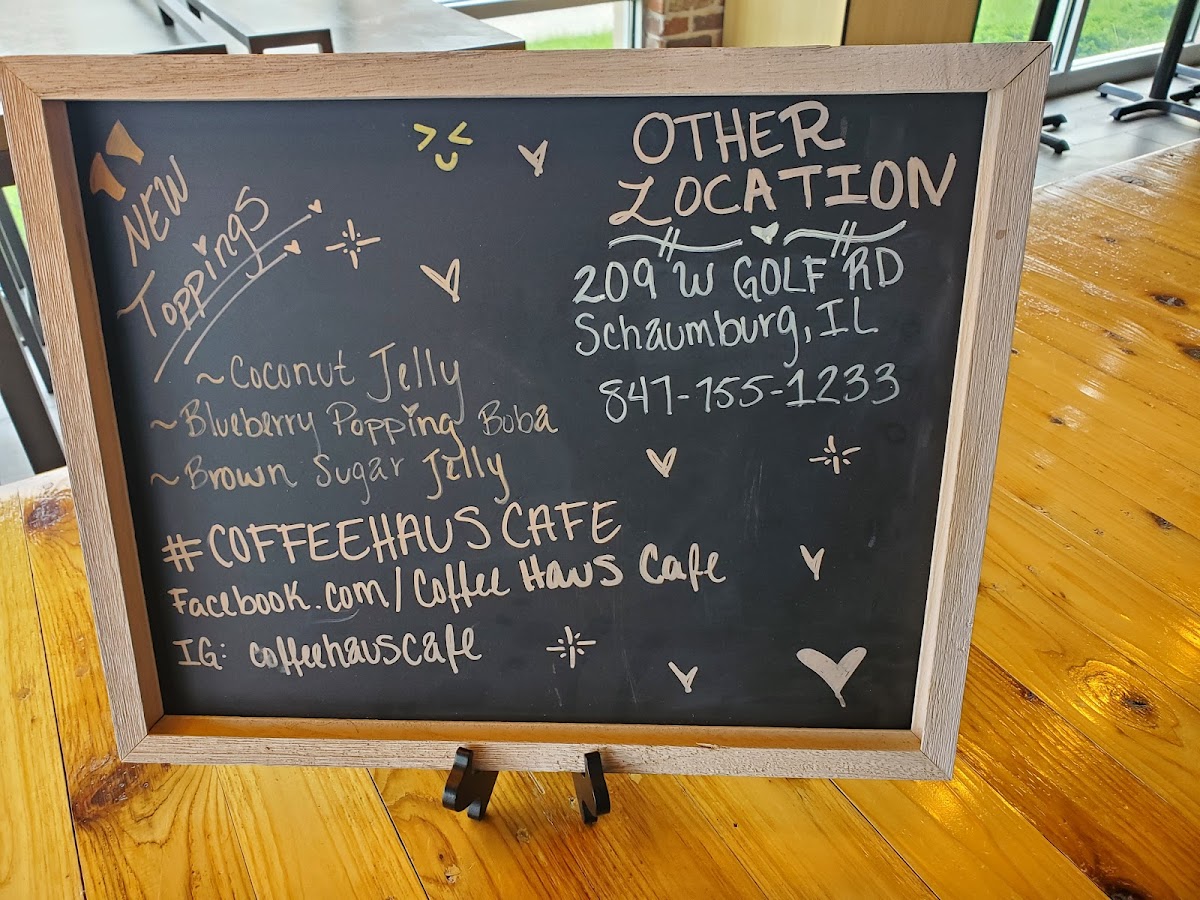 NEW
Toppings
~Coconut Jelly
~Blueberry Popping Boba
~Brown Sugar Jelly
#COFFEEHAUS CAFE
Facebook.com/Coffee Haus Cafe
IG: coffeehauscafe
OTHER
LOCATION
209 W GOLF RD
Schaumburg, IL
847-755-1233